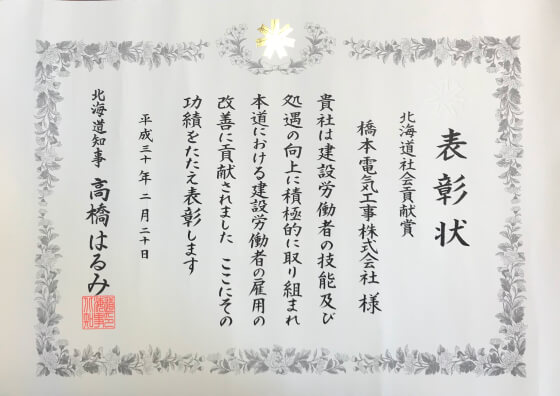 表彰状
北海道社会貢献賞
橋本電気工事株式会社 様
貴社は建設労働者の技能及び
処遇の向上に積極的に取り組まれ
本道における建設労働者の雇用の
改善に貢献されました ここにその
功績をたたえ表彰します
平成三十年二月二十日
北海道知事 高橋はるみ